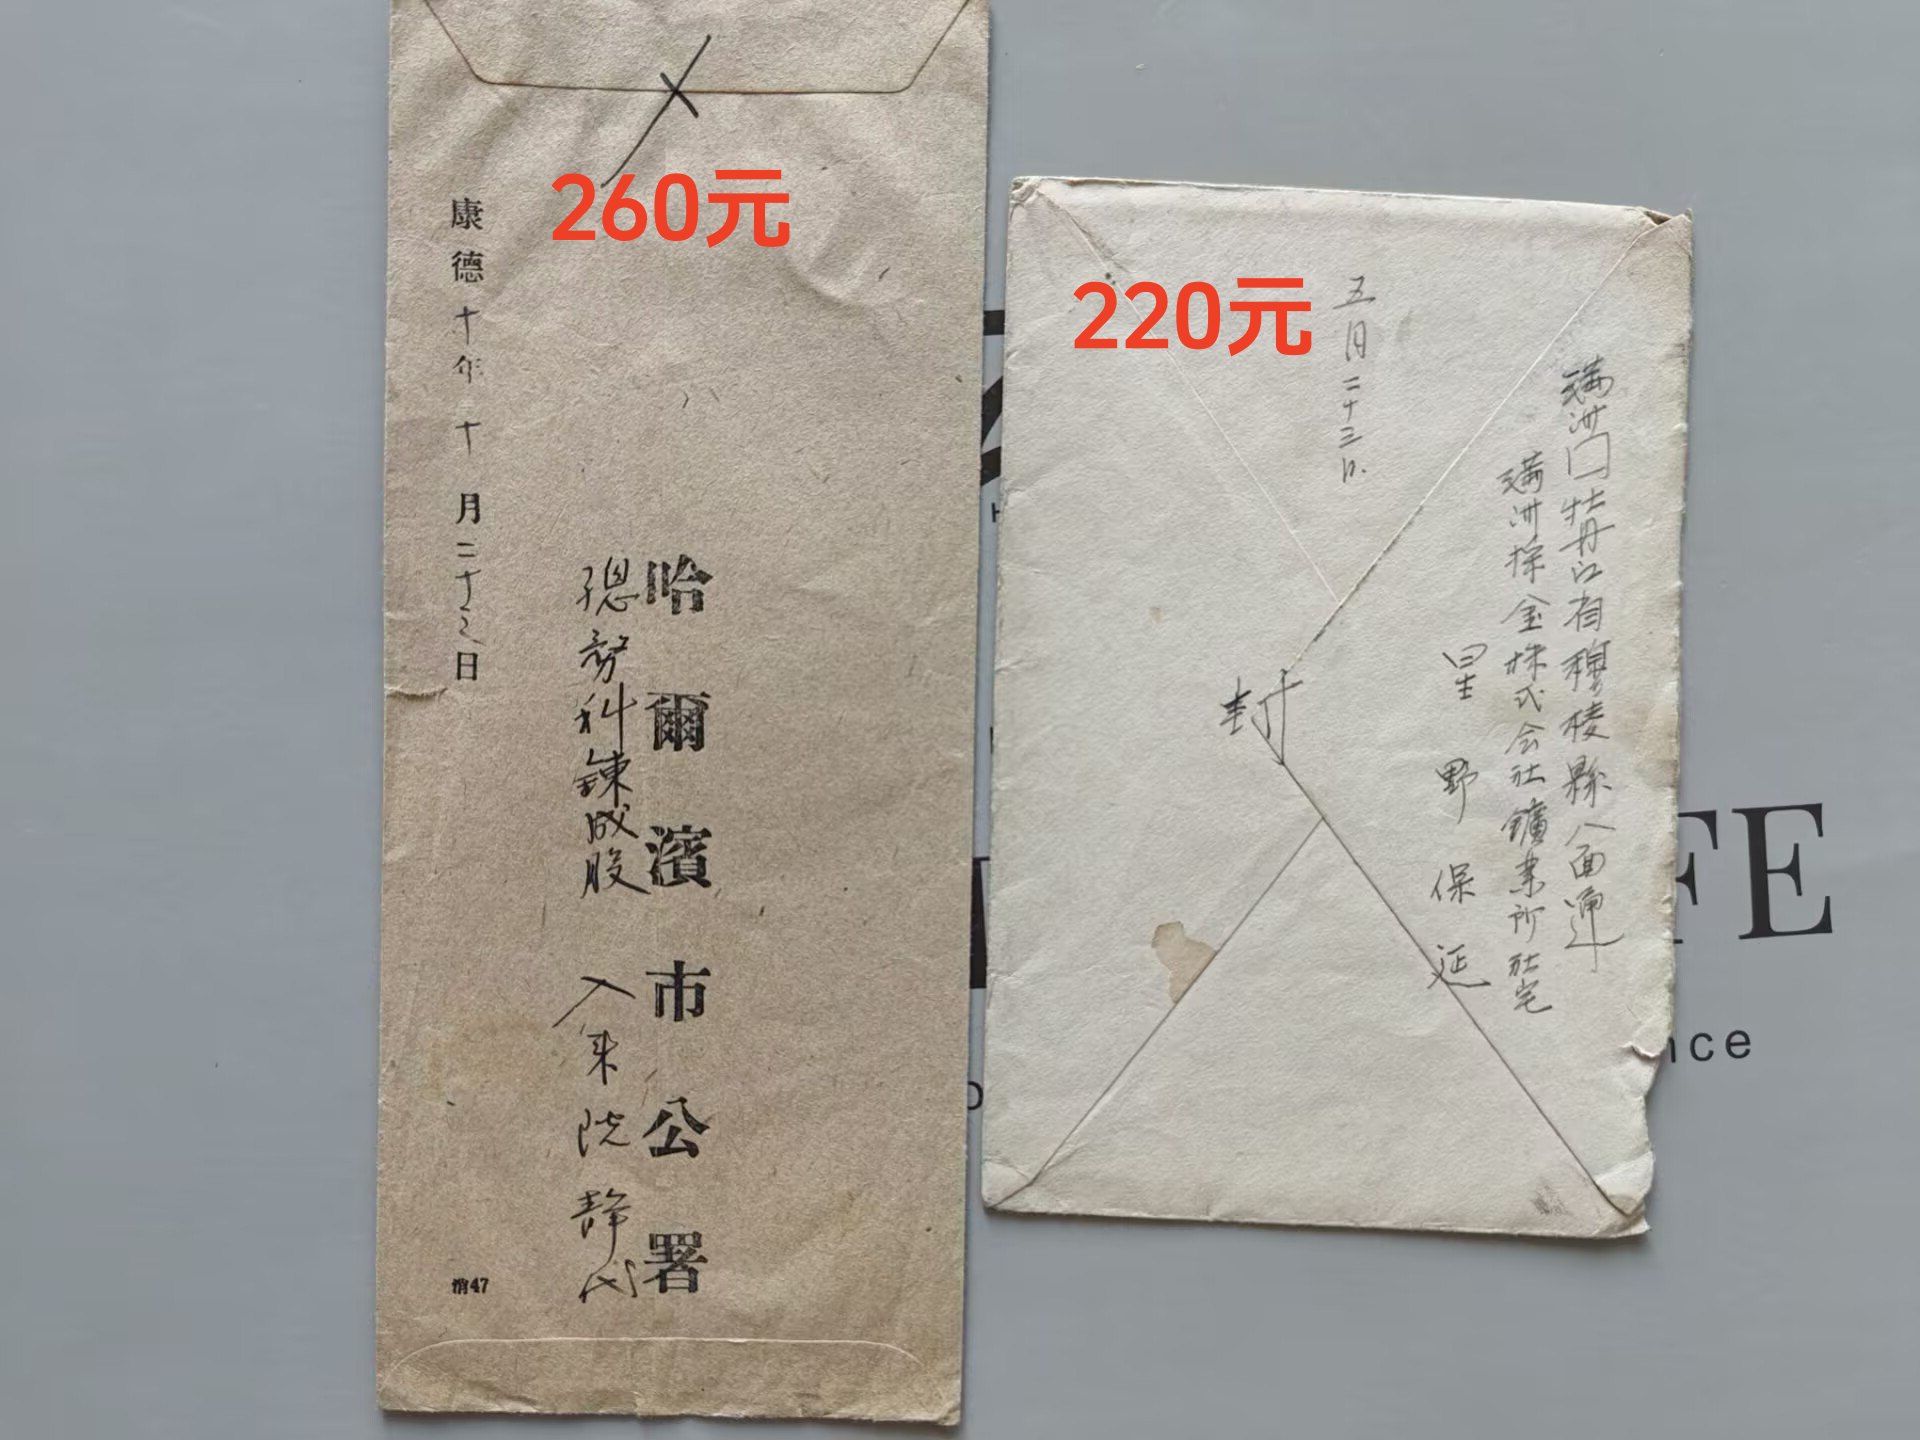 260元
康德十年十月二十三日
哈爾濱市公署
總務科鍊成股 入来院静代
消47
220元
五月二十三日
満洲国牡丹江省穆棱縣八面通
満洲採金株式会社鑛業所社宅
星野保延
封
FE
nce